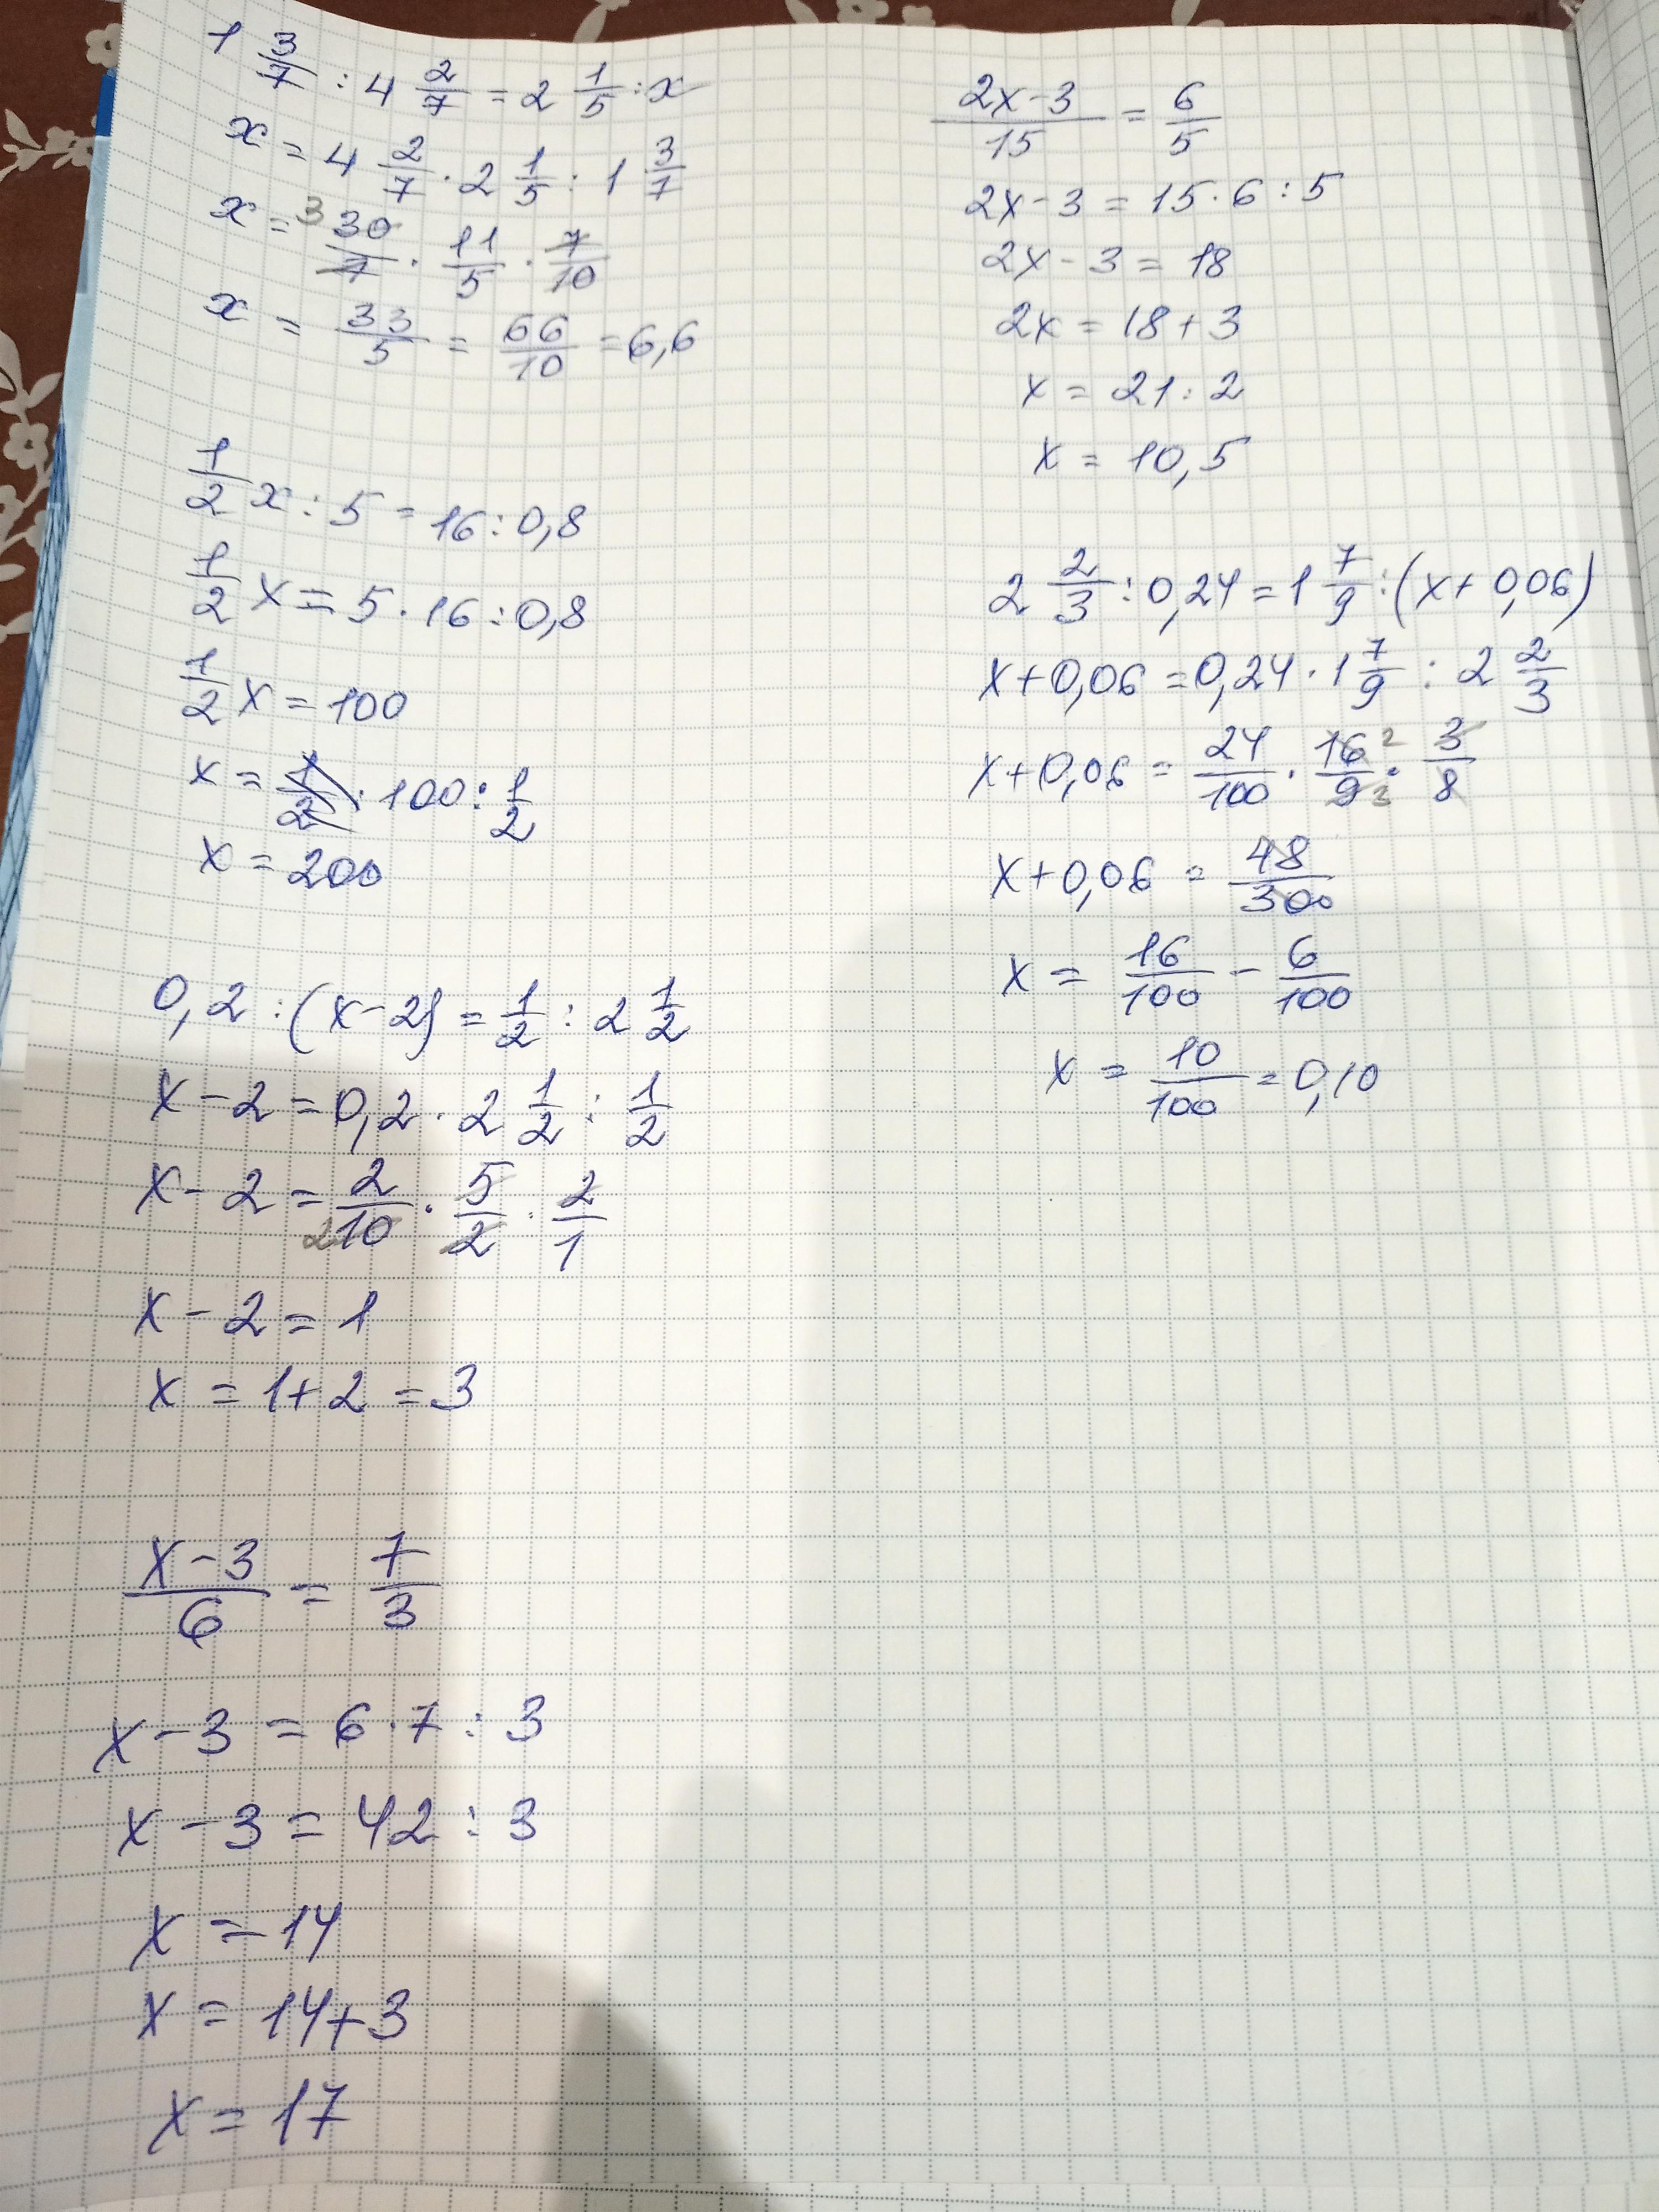 1 3/7 : 4 2/7 = 2 1/5 : x
x = 4 2/7 · 2 1/5 : 1 3/7
x = 3 30/7 · 11/5 · 7/10
x = 33/5 = 66/10 = 6,6
1/2 x : 5 = 16 : 0,8
1/2 x = 5 · 16 : 0,8
1/2 x = 100
x = 1/2 · 100 : 1/2
x = 200
0,2 : (x - 2) = 1/2 : 2 1/2
x - 2 = 0,2 · 2 1/2 : 1/2
x - 2 = 2/10 2 · 5/2 · 2/1
x - 2 = 1
x = 1 + 2 = 3
x - 3/6 = 7/3
x - 3 = 6 · 7 : 3
x - 3 = 42 : 3
x = 14
x = 14 + 3
x = 17
2x - 3/15 = 6/5
2x - 3 = 15 · 6 : 5
2x - 3 = 18
2x = 18 + 3
x = 21 : 2
x = 10,5
2 2/3 : 0,24 = 1 7/9 : (x + 0,06)
x + 0,06 = 0,24 · 1 7/9 : 2 2/3
x + 0,06 = 24/100 · 16 2/9 3 · 3/8
x + 0,06 = 48/300
x = 16/100 - 6/100
x = 10/100 = 0,10